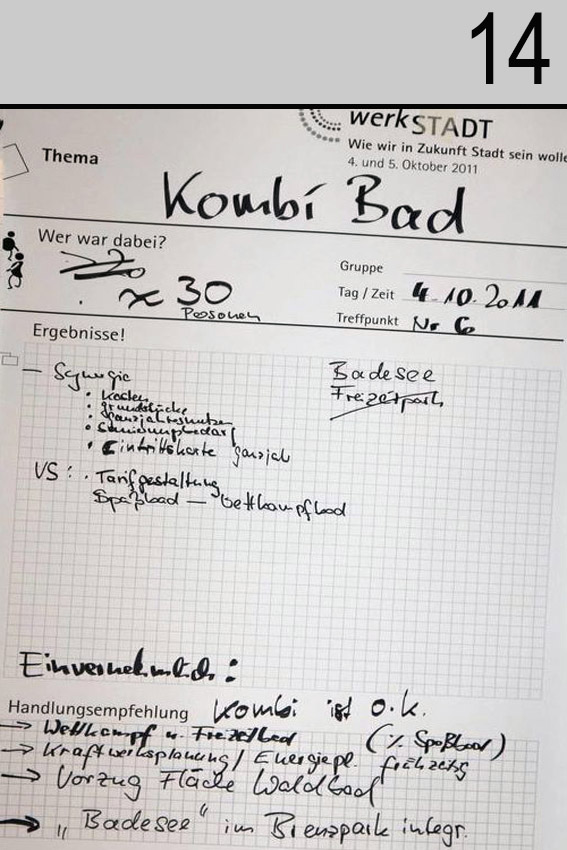 14
werkSTADT
Wie wir in Zukunft Stadt sein wolle
4. und 5. Oktober 2011
Thema
Kombi Bad
Wer war dabei?
≈ 30
Personen
Gruppe
Tag / Zeit 4.10.2011
Treffpunkt Nr 6
Ergebnisse!
— Synergie
• Kosten
• Grundstücke
• Ganzjahresnutzen
• Schwimmbedarf
• Eintrittskarte ganzjah
VS: . Tarifgestaltung
Spaßbad — Wettkampfbad
Badesee
Freizeitpark
Einvernehmlich:
Handlungsempfehlung Kombi ist o.k.
→ Wettkampf u. Freizeitbad (% Spaßbad)
→ Kraftwerksplanung / Energiepl. frühzeitig
→ Vorzug Fläche Waldbad
→ „Badesee" im Brenzpark integr.